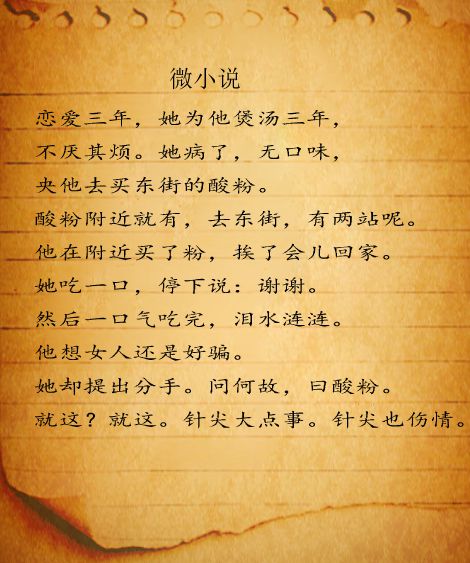 微小说
恋爱三年，她为他煲汤三年，
不厌其烦。她病了，无口味，
央他去买东街的酸粉。
酸粉附近就有，去东街，有两站呢。
他在附近买了粉，挨了会儿回家。
她吃一口，停下说：谢谢。
然后一口气吃完，泪水涟涟。
他想女人还是好骗。
她却提出分手。问何故，曰酸粉。
就这？就这。针尖大点事。针尖也伤情。